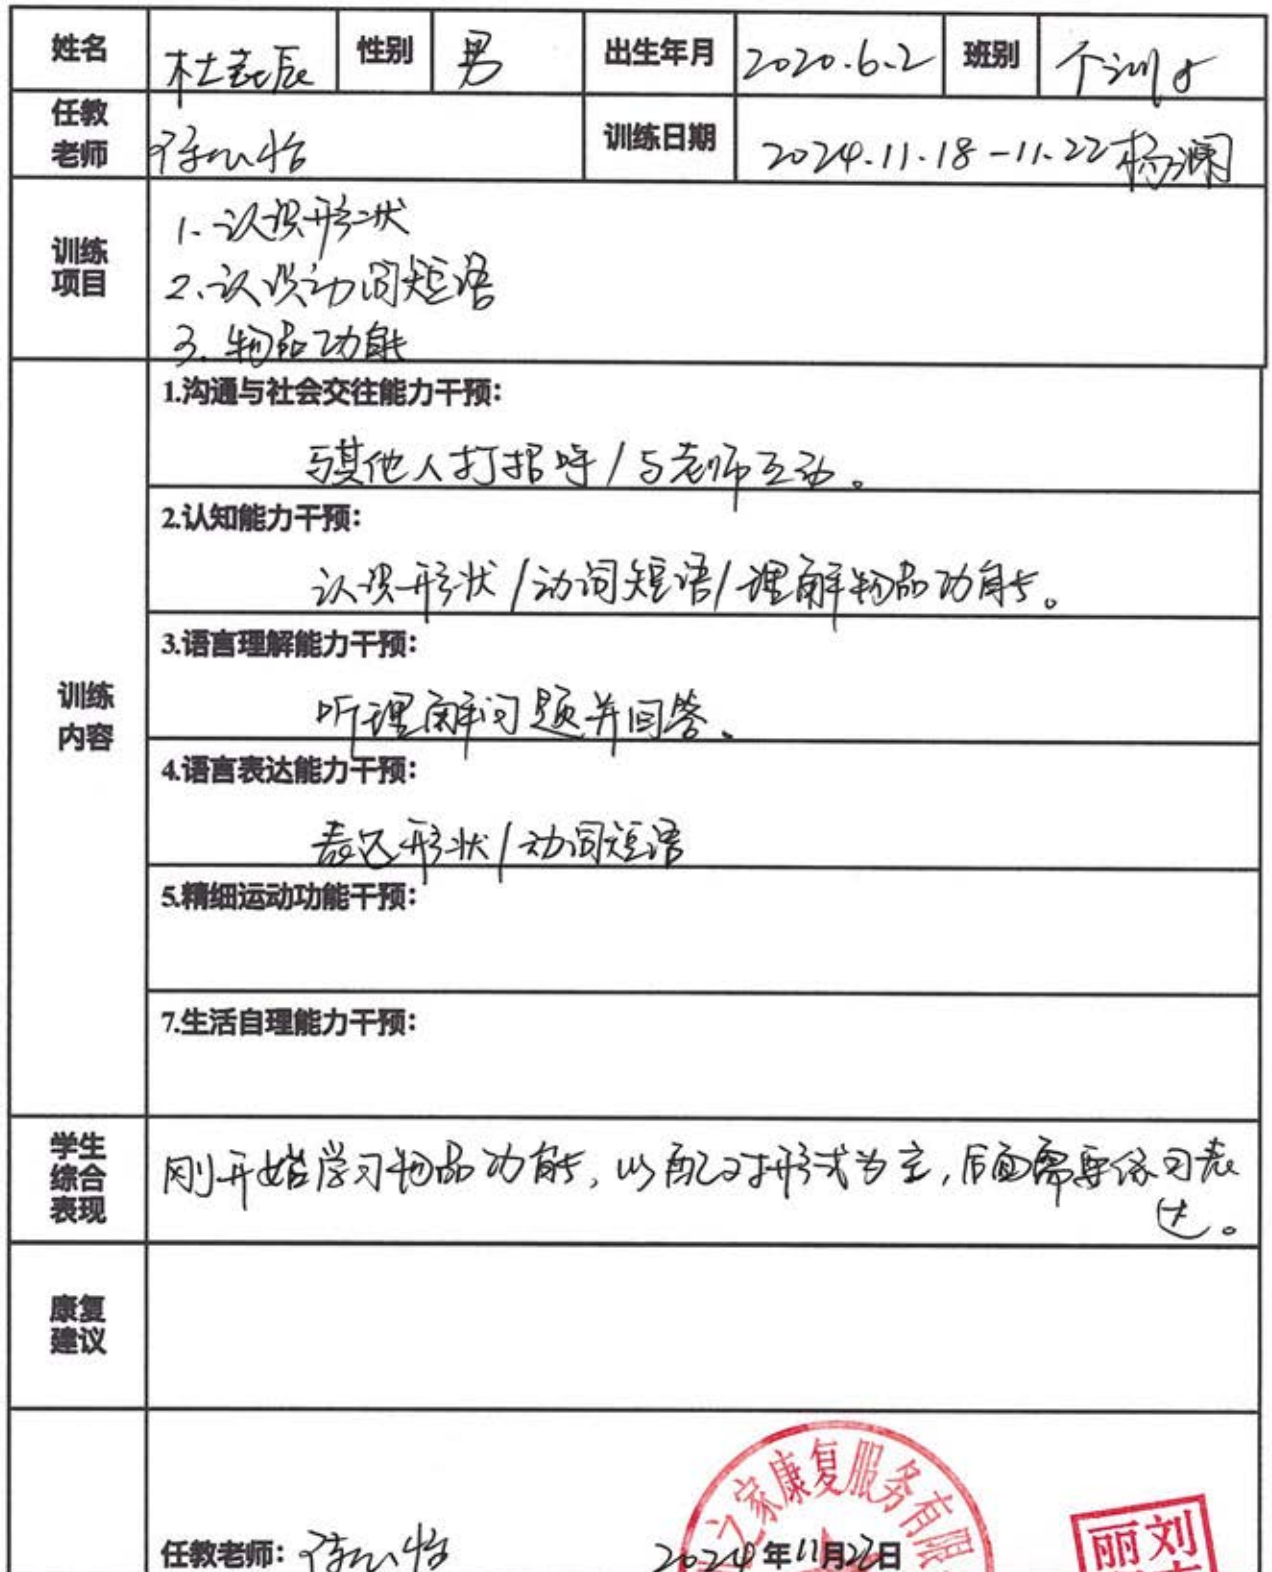 姓名 杜 辰 性别 男 出生年月 2020.6.2 班别 个训
任教老师 徐心怡 训练日期 2024.11.18-11.22 杨澜
训练项目
1.认识形状
2.认识动词短语
3.物品功能
训练内容
1.沟通与社会交往能力干预：
与其他人打招呼/与老师互动。
2.认知能力干预：
认识形状/动词短语/理解物品功能。
3.语言理解能力干预：
听理解问题并回答。
4.语言表达能力干预：
表达形状/动词短语
5.精细运动功能干预：
7.生活自理能力干预：
学生综合表现
刚开始学习物品功能，以配对形式为主，后面需要练习表
达。
康复建议
任教老师：徐心怡 2024年11月22日
之家康复服务有限
刘
丽